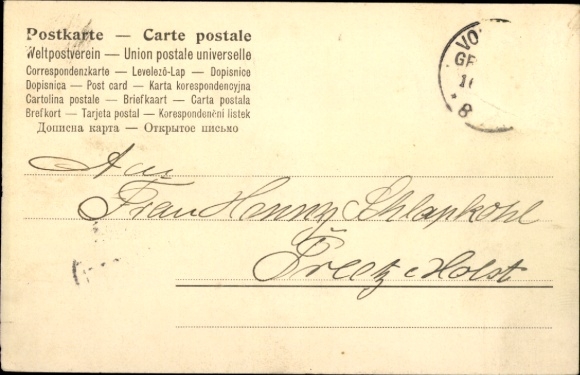 Postkarte — Carte postale
Weltpostverein — Union postale universelle
Correspondenzkarte — Levelező-Lap — Dopisnice
Dopisnica — Post card — Karta korespondencyjna
Cartolina postale — Briefkaart — Carta postala
Brefkort — Tarjeta postal — Korespondenční lístek
Дописна карта — Открытое письмо
VO
GR
1
8
An
Frau Henny Schlapkohl
Preetz Holst